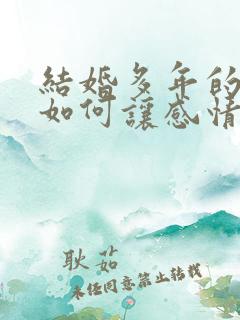 結婚多年的
如何讓感情
耿茹
未經同意禁止轉載